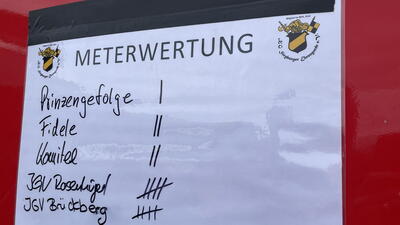 METERWERTUNG
Prinzengefolge |
Fidele ||
Komitee ||
JGV Rosenhügel
JGV Brückberg